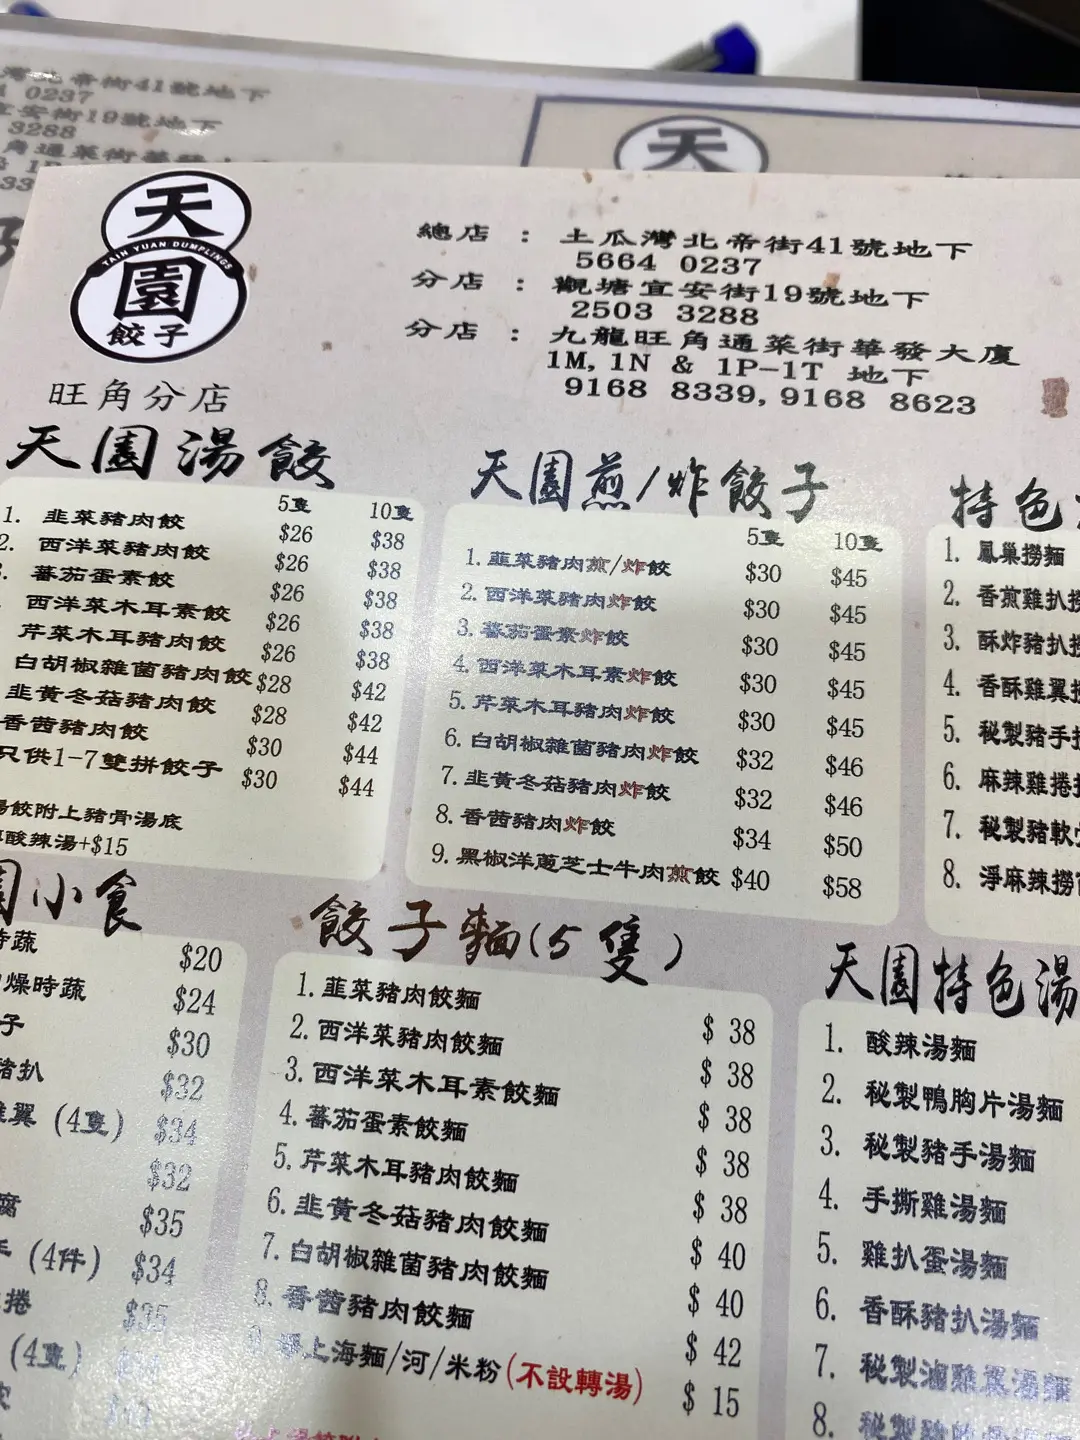 灣北帝街41號地下
0237
宜安街19號地下
3288
天
天
TAIN YUAN DUMPLINGS
園
餃子
旺角分店
總店 : 土瓜灣北帝街41號地下
5664 0237
分店 : 觀塘宜安街19號地下
2503 3288
分店 : 九龍旺角通菜街華發大廈
1M, 1N & 1P-1T 地下
9168 8339, 9168 8623
天園湯餃
5隻 10隻
1. 韭菜豬肉餃 $26 $38
2. 西洋菜豬肉餃 $26 $38
蕃茄蛋素餃 $26 $38
西洋菜木耳素餃 $26 $38
芹菜木耳豬肉餃 $26 $38
白胡椒雜菌豬肉餃 $28 $42
韭黃冬菇豬肉餃 $28 $42
香茜豬肉餃 $30 $44
只供1-7雙拼餃子 $30 $44
湯餃附上豬骨湯底
酸辣湯+$15
天園煎/炸餃子
5隻 10隻
1. 韭菜豬肉煎/炸餃 $30 $45
2. 西洋菜豬肉炸餃 $30 $45
3. 蕃茄蛋素炸餃 $30 $45
4. 西洋菜木耳素炸餃 $30 $45
5. 芹菜木耳豬肉炸餃 $30 $45
6. 白胡椒雜菌豬肉炸餃 $32 $46
7. 韭黃冬菇豬肉炸餃 $32 $46
8. 香茜豬肉炸餃 $34 $50
9. 黑椒洋蔥芝士牛肉煎餃 $40 $58
特色
1. 鳳巢撈麵
2. 香煎雞扒撈
3. 酥炸豬扒撈
4. 香酥雞翼撈
5. 秘製豬手撈
6. 麻辣雞捲撈
7. 秘製豬軟骨
8. 淨麻辣撈
園小食
時蔬 $20
燥時蔬 $24
子 $30
豬扒 $32
雞翼 (4隻) $34
$32
腐 $35
手 (4件) $34
捲 $35
(4隻)
餃子麵(5隻)
1. 韭菜豬肉餃麵 $ 38
2. 西洋菜豬肉餃麵 $ 38
3. 西洋菜木耳素餃麵 $ 38
4. 蕃茄蛋素餃麵 $ 38
5. 芹菜木耳豬肉餃麵 $ 38
6. 韭黃冬菇豬肉餃麵 $ 40
7. 白胡椒雜菌豬肉餃麵 $ 40
8. 香茜豬肉餃麵 $ 42
上海麵/河/米粉(不設轉湯) $ 15
天園特色湯
1. 酸辣湯麵
2. 秘製鴨胸片湯麵
3. 秘製豬手湯麵
4. 手撕雞湯麵
5. 雞扒蛋湯麵
6. 香酥豬扒湯麵
7. 秘製滷雞翼湯麵
8. 秘製豬軟骨湯